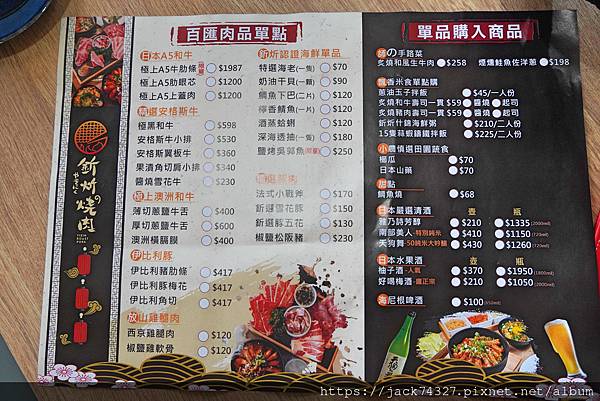 釿炘燒肉
百匯肉品單點
日本A5和牛
極上A5牛肋條 限量 $1987
極上A5肋眼芯 $1200
極上A5上蓋肉 $1200
精選安格斯牛
極黑和牛 $598
安格斯牛小排 $530
安格斯翼板牛 $360
果漬角切肩小排 $340
醬燒雪花牛 $230
極上澳洲和牛
薄切蔥鹽牛舌 $400
厚切蔥鹽牛舌 $600
澳洲橫膈膜 $400
伊比利豚
伊比利豬肋條 $417
伊比利豚梅花 $417
伊比利角切 $417
放山雞腿肉
西京雞腿肉 $120
椒鹽雞軟骨 $120
釿炘認證海鮮單品
特選海老(一隻) $70
奶油干貝(一顆) $90
鯛魚下巴(二片) $120
檸香鯖魚(一片) $120
酒蒸蛤蜊 $120
深海透抽(一隻) $180
鹽烤吳郭魚(限量) $250
嚴選豚肉
法式小戰斧 $170
釿選雪花豚 $150
釿選豚五花 $130
椒鹽松阪豬 $230
單品購入商品
師の手路菜
炙燒和風生牛肉 $258 煙燻鮭魚佐洋蔥 $198
飄香米食單點購
蔥油玉子拌飯 $45/一人份
炙燒和牛壽司一貫 $59 醬燒 起司
炙燒豬肉壽司一貫 $59 醬燒 起司
釿炘什錦海鮮粥 $210/二人份
15隻蒜蝦鑄鐵拌飯 $225/二人份
小農慎選田園蔬食
櫛瓜 $70
日本山藥 $70
甜點
鯛魚燒 $68
日本嚴選清酒 壺 瓶
雅乃詩芳醇 $210 $1335(2000ml)
南部美人-特別純米 $410 $1150(720ml)
天狗舞-50純米大吟釀 $430 $1260(720ml)
日本水果酒 壺 瓶
柚子酒-人氣 $370 $1950(1800ml)
好喝梅酒-鷹正宗 $210 $1050(2000ml)
海尼根啤酒 $100(650ml)
https://jack74327.pixnet.net/album